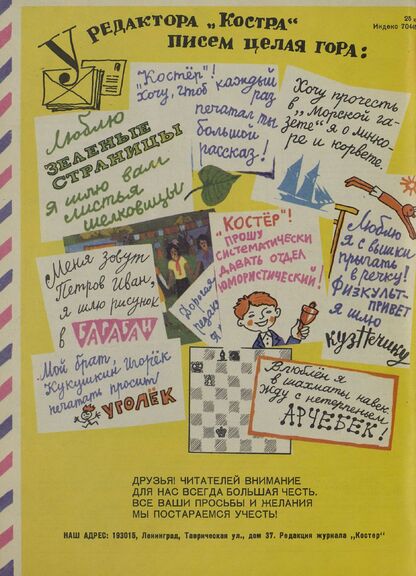 У РЕДАКТОРА „КОСТРА“
ПИСЕМ ЦЕЛАЯ ГОРА:
25 к
Индекс 7045
Люблю
ЗЕЛЕНЫЕ
СТРАНИЦЫ
Я шлю вам
листья
шелковицы
"Костёр"!
Хочу, чтоб каждый
раз
печатал ты
большой
рассказ!
Хочу прочесть
в „Морской га-
зете“ я о линко-
ре и корвете
Меня зовут
Петров Иван,
я шлю рисунок
в БАРАБАН
Дорогая
"КОСТЁР"!
ПРОШУ
СИСТЕМАТИЧЕСКИ
ДАВАТЬ ОТДЕЛ
ЮМОРИСТИЧЕСКИЙ!
Люблю
я с вышки
прыгать
в речку!
ФИЗКУЛЬТ-
ПРИВЕТ
Я шлю
КУЗНЕЧИКУ
Мой брат,
Кукушкин Игорёк
печатать просит
УГОЛЁК
Влюблён я
в шахматы навек.
Жду с нетерпеньем
АРЧЕБЕК!
ДРУЗЬЯ! ЧИТАТЕЛЕЙ ВНИМАНИЕ
ДЛЯ НАС ВСЕГДА БОЛЬШАЯ ЧЕСТЬ.
ВСЕ ВАШИ ПРОСЬБЫ И ЖЕЛАНИЯ
МЫ ПОСТАРАЕМСЯ УЧЕСТЬ!
НАШ АДРЕС: 193015, Ленинград, Таврическая ул., дом 37. Редакция журнала „Костер“